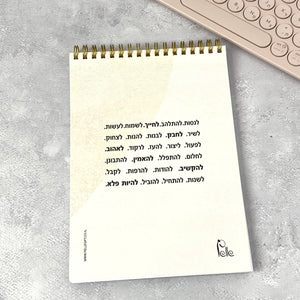 לנסות. להתלהב. לחייך. לשמוח. לעשות.
לשיר. לחבק. לבנות. להנות. לצחוק.
לפעול. ליצור. להעז. לרקוד. לאהוב.
לחלום. להתפלל. להאמין. להתבונן.
להקשיב. להודות. להרפות. לקבל.
לשנות. להתחיל. להוביל. להיות פלא.
Pelle